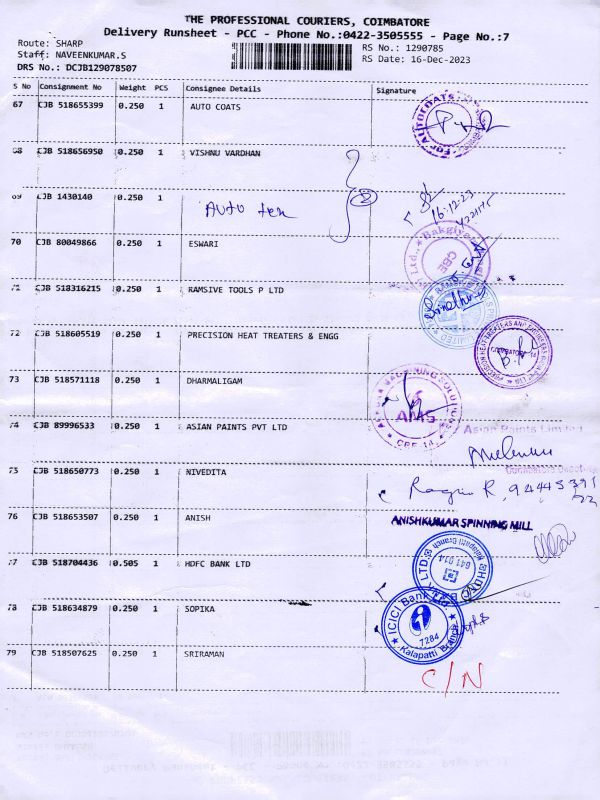 THE PROFESSIONAL COURIERS, COIMBATORE
Delivery Runsheet - PCC - Phone No.:0422-3505555 - Page No.:7
Route: SHARP
Staff: NAVEENKUMAR.S
DRS No.: DCJB129078507
RS No.: 1290785
RS Date: 16-Dec-2023
S No Consignment No Weight PCS Consignee Details Signature
67 CJB 518655399 0.250 1 AUTO COATS
68 CJB 518656950 0.250 1 VISHNU VARDHAN
69 CJB 1430140 0.250 1
Auto tex
2
16.12.23
70 CJB 80049866 0.250 1 ESWARI
CBE
71 CJB 518316215 0.250 1 RAMSIVE TOOLS P LTD
72 CJB 518605519 0.250 1 PRECISION HEAT TREATERS & ENGG
COIMBATORE
73 CJB 518571118 0.250 1 DHARMALIGAM
AMS
74 CJB 89996533 0.250 1 ASIAN PAINTS PVT LTD
Asian Paints Limited
75 CJB 518650773 0.250 1 NIVEDITA
76 CJB 518653507 0.250 1 ANISH
ANISHKUMAR SPINNING MILL
77 CJB 518704436 0.505 1 HDFC BANK LTD
Kalapatti Branch
641 014
78 CJB 518634879 0.250 1 SOPIKA
ICICI Bank Ltd
7284
Kalapatti Branch
79 CJB 518507625 0.250 1 SRIRAMAN
C/N